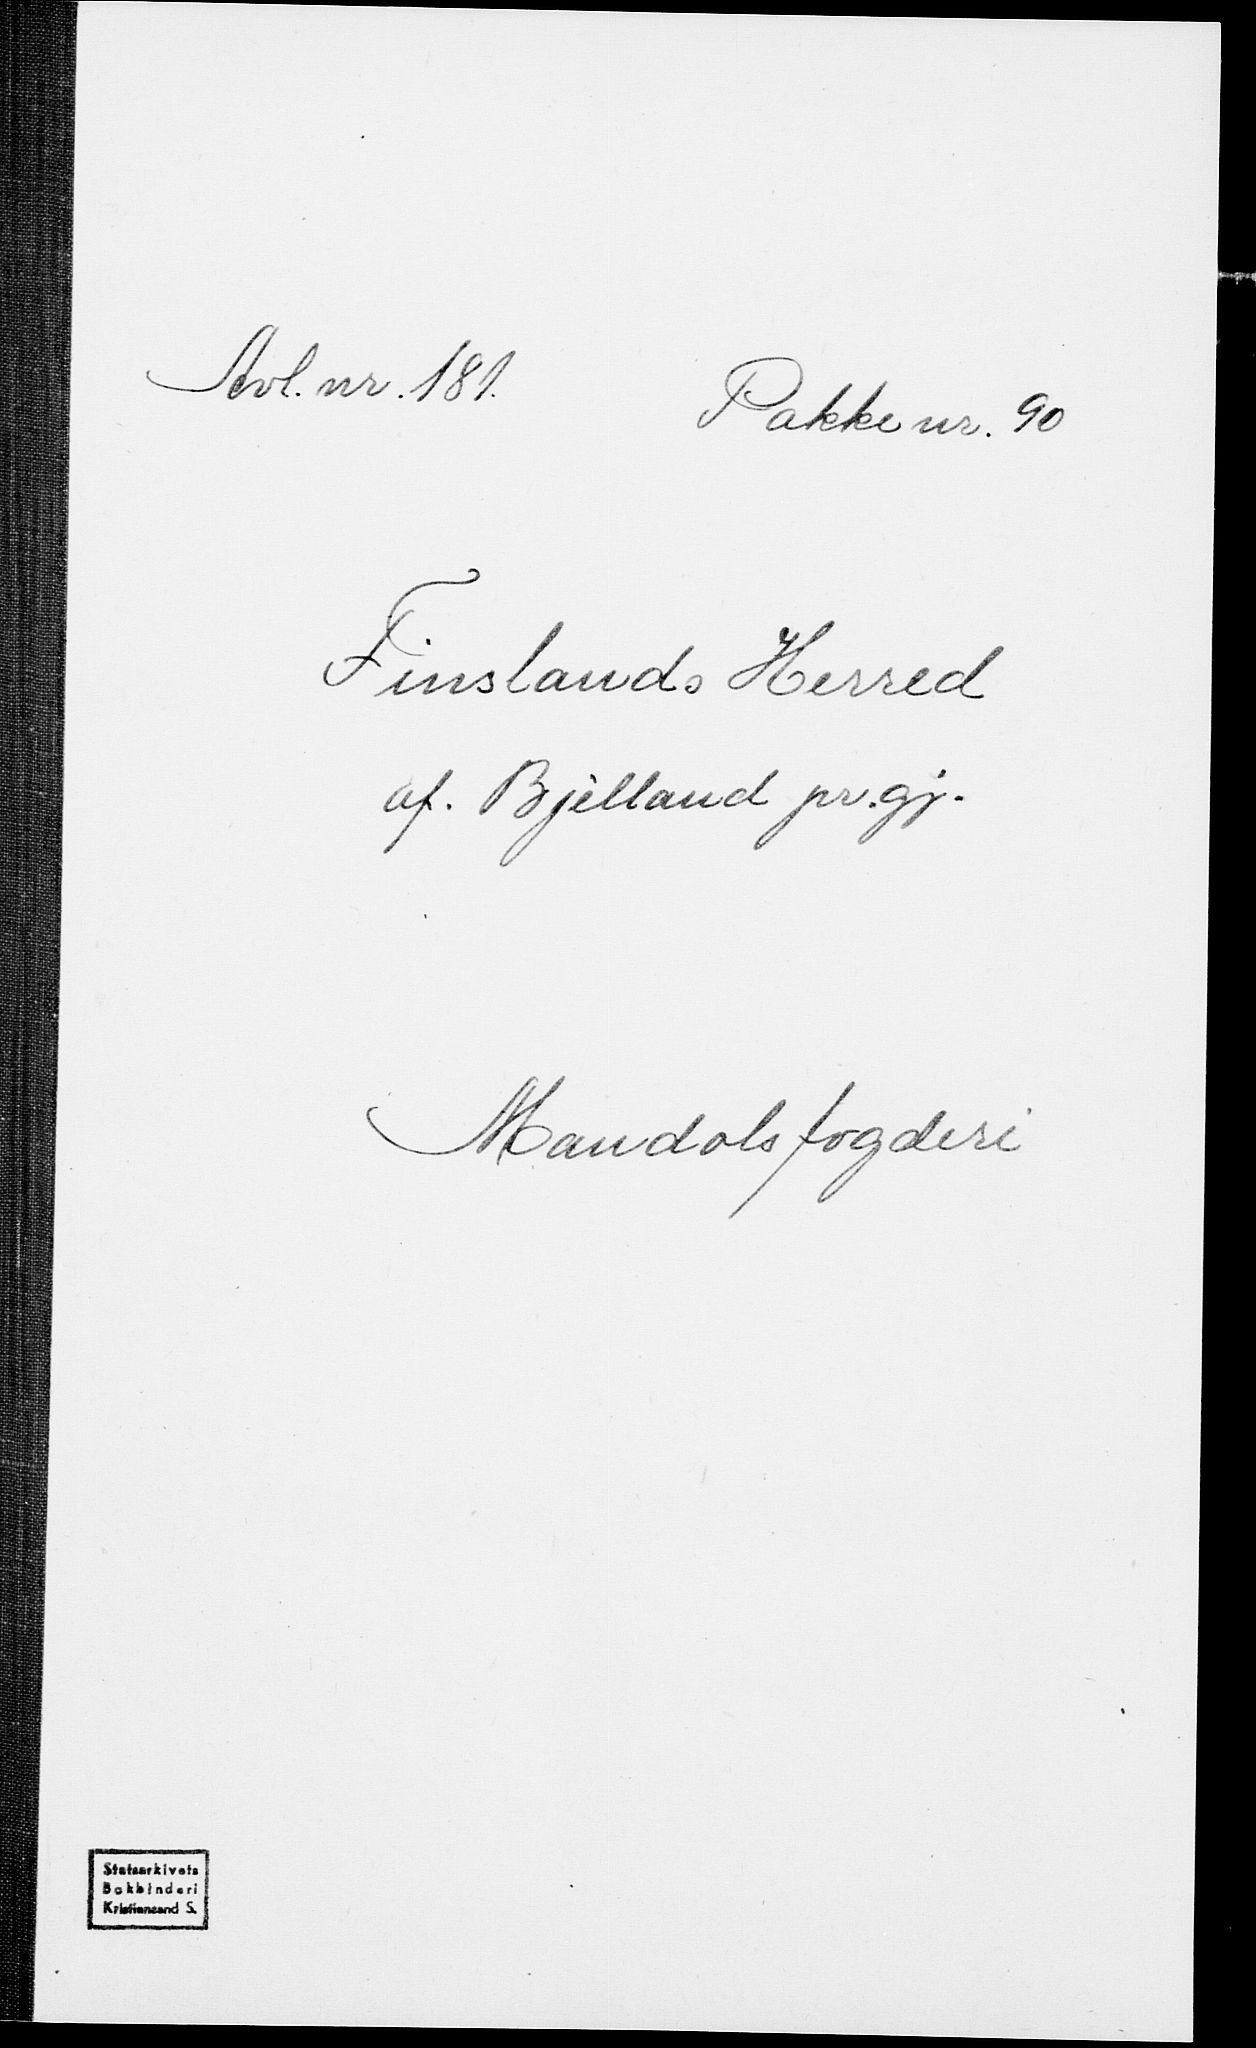 Avl. nr. 181. Pakke nr. 90
Finslands Herred
af. Bjelland pr.gj.
Mandals fogderi
Statsarkivets
Bokbinderi
Kristiansand S.